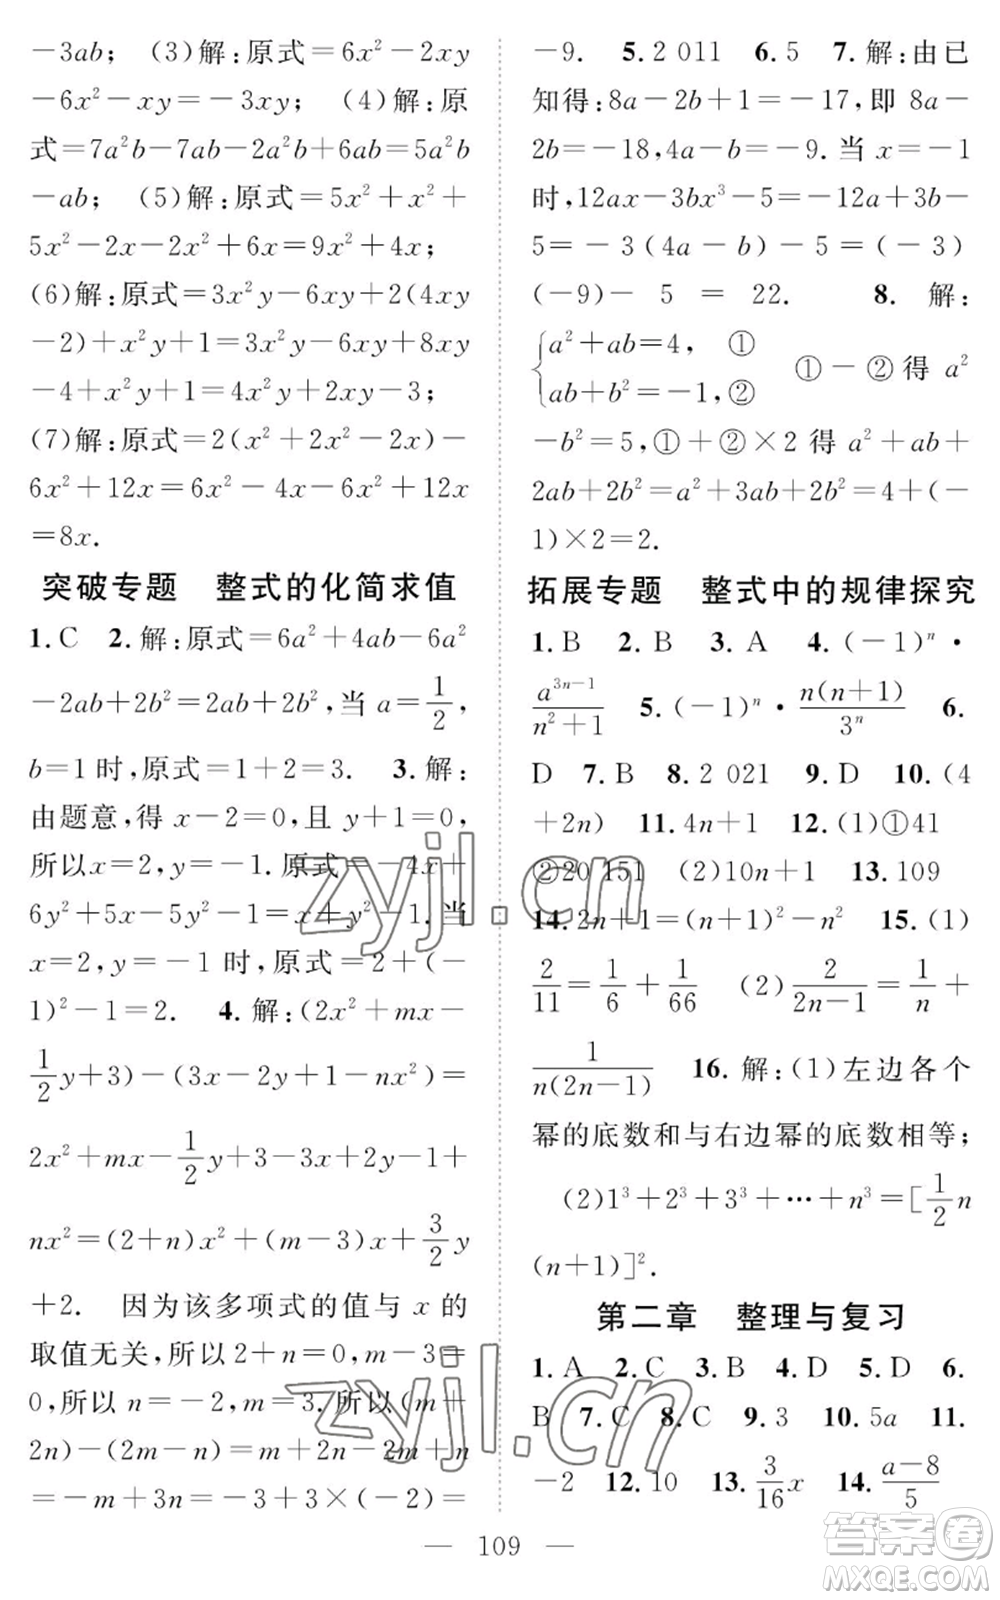 -3ab; (3)解:原式=6x²-2xy
-6x²-xy=-3xy; (4)解:原
式=7a²b-7ab-2a²b+6ab=5a²b
-ab; (5)解:原式=5x²+x²+
5x²-2x-2x²+6x=9x²+4x;
(6)解:原式=3x²y-6xy+2(4xy
-2)+x²y+1=3x²y-6xy+8xy
-4+x²y+1=4x²y+2xy-3;
(7)解:原式=2(x²+2x²-2x)-
6x²+12x=6x²-4x-6x²+12x
=8x.
突破专题 整式的化简求值
1.C 2.解:原式=6a²+4ab-6a²
-2ab+2b²=2ab+2b²,当a=1/2,
b=1时,原式=1+2=3. 3.解:
由题意,得x-2=0,且y+1=0,
所以x=2,y=-1.原式=-4x+
6y²+5x-5y²-1=x+y²-1.当
x=2,y=-1时,原式=2+(-
1)²-1=2. 4.解:(2x²+mx-
1/2y+3)-(3x-2y+1-nx²)=
2x²+mx-1/2y+3-3x+2y-1+
nx²=(2+n)x²+(m-3)x+3/2y
+2. 因为该多项式的值与x的
取值无关,所以2+n=0,m-3=
0,所以n=-2,m=3.所以(m+
2n)-(2m-n)=m+2n-2m+n
=-m+3n=-3+3×(-2)=
-9. 5.2 011 6.5 7.解:由已
知得:8a-2b+1=-17,即8a-
2b=-18,4a-b=-9.当x=-1
时,12ax-3bx³-5=-12a+3b-
5=-3(4a-b)-5=(-3)
(-9)-5=22. 8.解:
{a²+ab=4, ①
ab+b²=-1,② ①-②得a²
-b²=5,①+②×2得a²+ab+
2ab+2b²=a²+3ab+2b²=4+(-
1)×2=2.
拓展专题 整式中的规律探究
1.B 2.B 3.A 4.(-1)ⁿ·
a³ⁿ⁻¹/n²+1 5.(-1)ⁿ·n(n+1)/3ⁿ 6.
D 7.B 8.2 021 9.D 10.(4
+2n) 11.4n+1 12.(1)①41
②20 151 (2)10n+1 13.109
14.2n+1=(n+1)²-n² 15.(1)
2/11=1/6+1/66 (2)2/2n-1=1/n+
1/n(2n-1) 16.解:(1)左边各个
幂的底数和与右边幂的底数相等;
(2)1³+2³+3³+…+n³=[1/2n
(n+1)]².
第二章 整理与复习
1.A 2.C 3.B 4.D 5.D 6.
B 7.C 8.C 9.3 10.5a 11.
-2 12.10 13.3/16x 14.a-8/5
— 109 —
zyjl.cn
zyjl.cn
答案卷
MXQE.COM